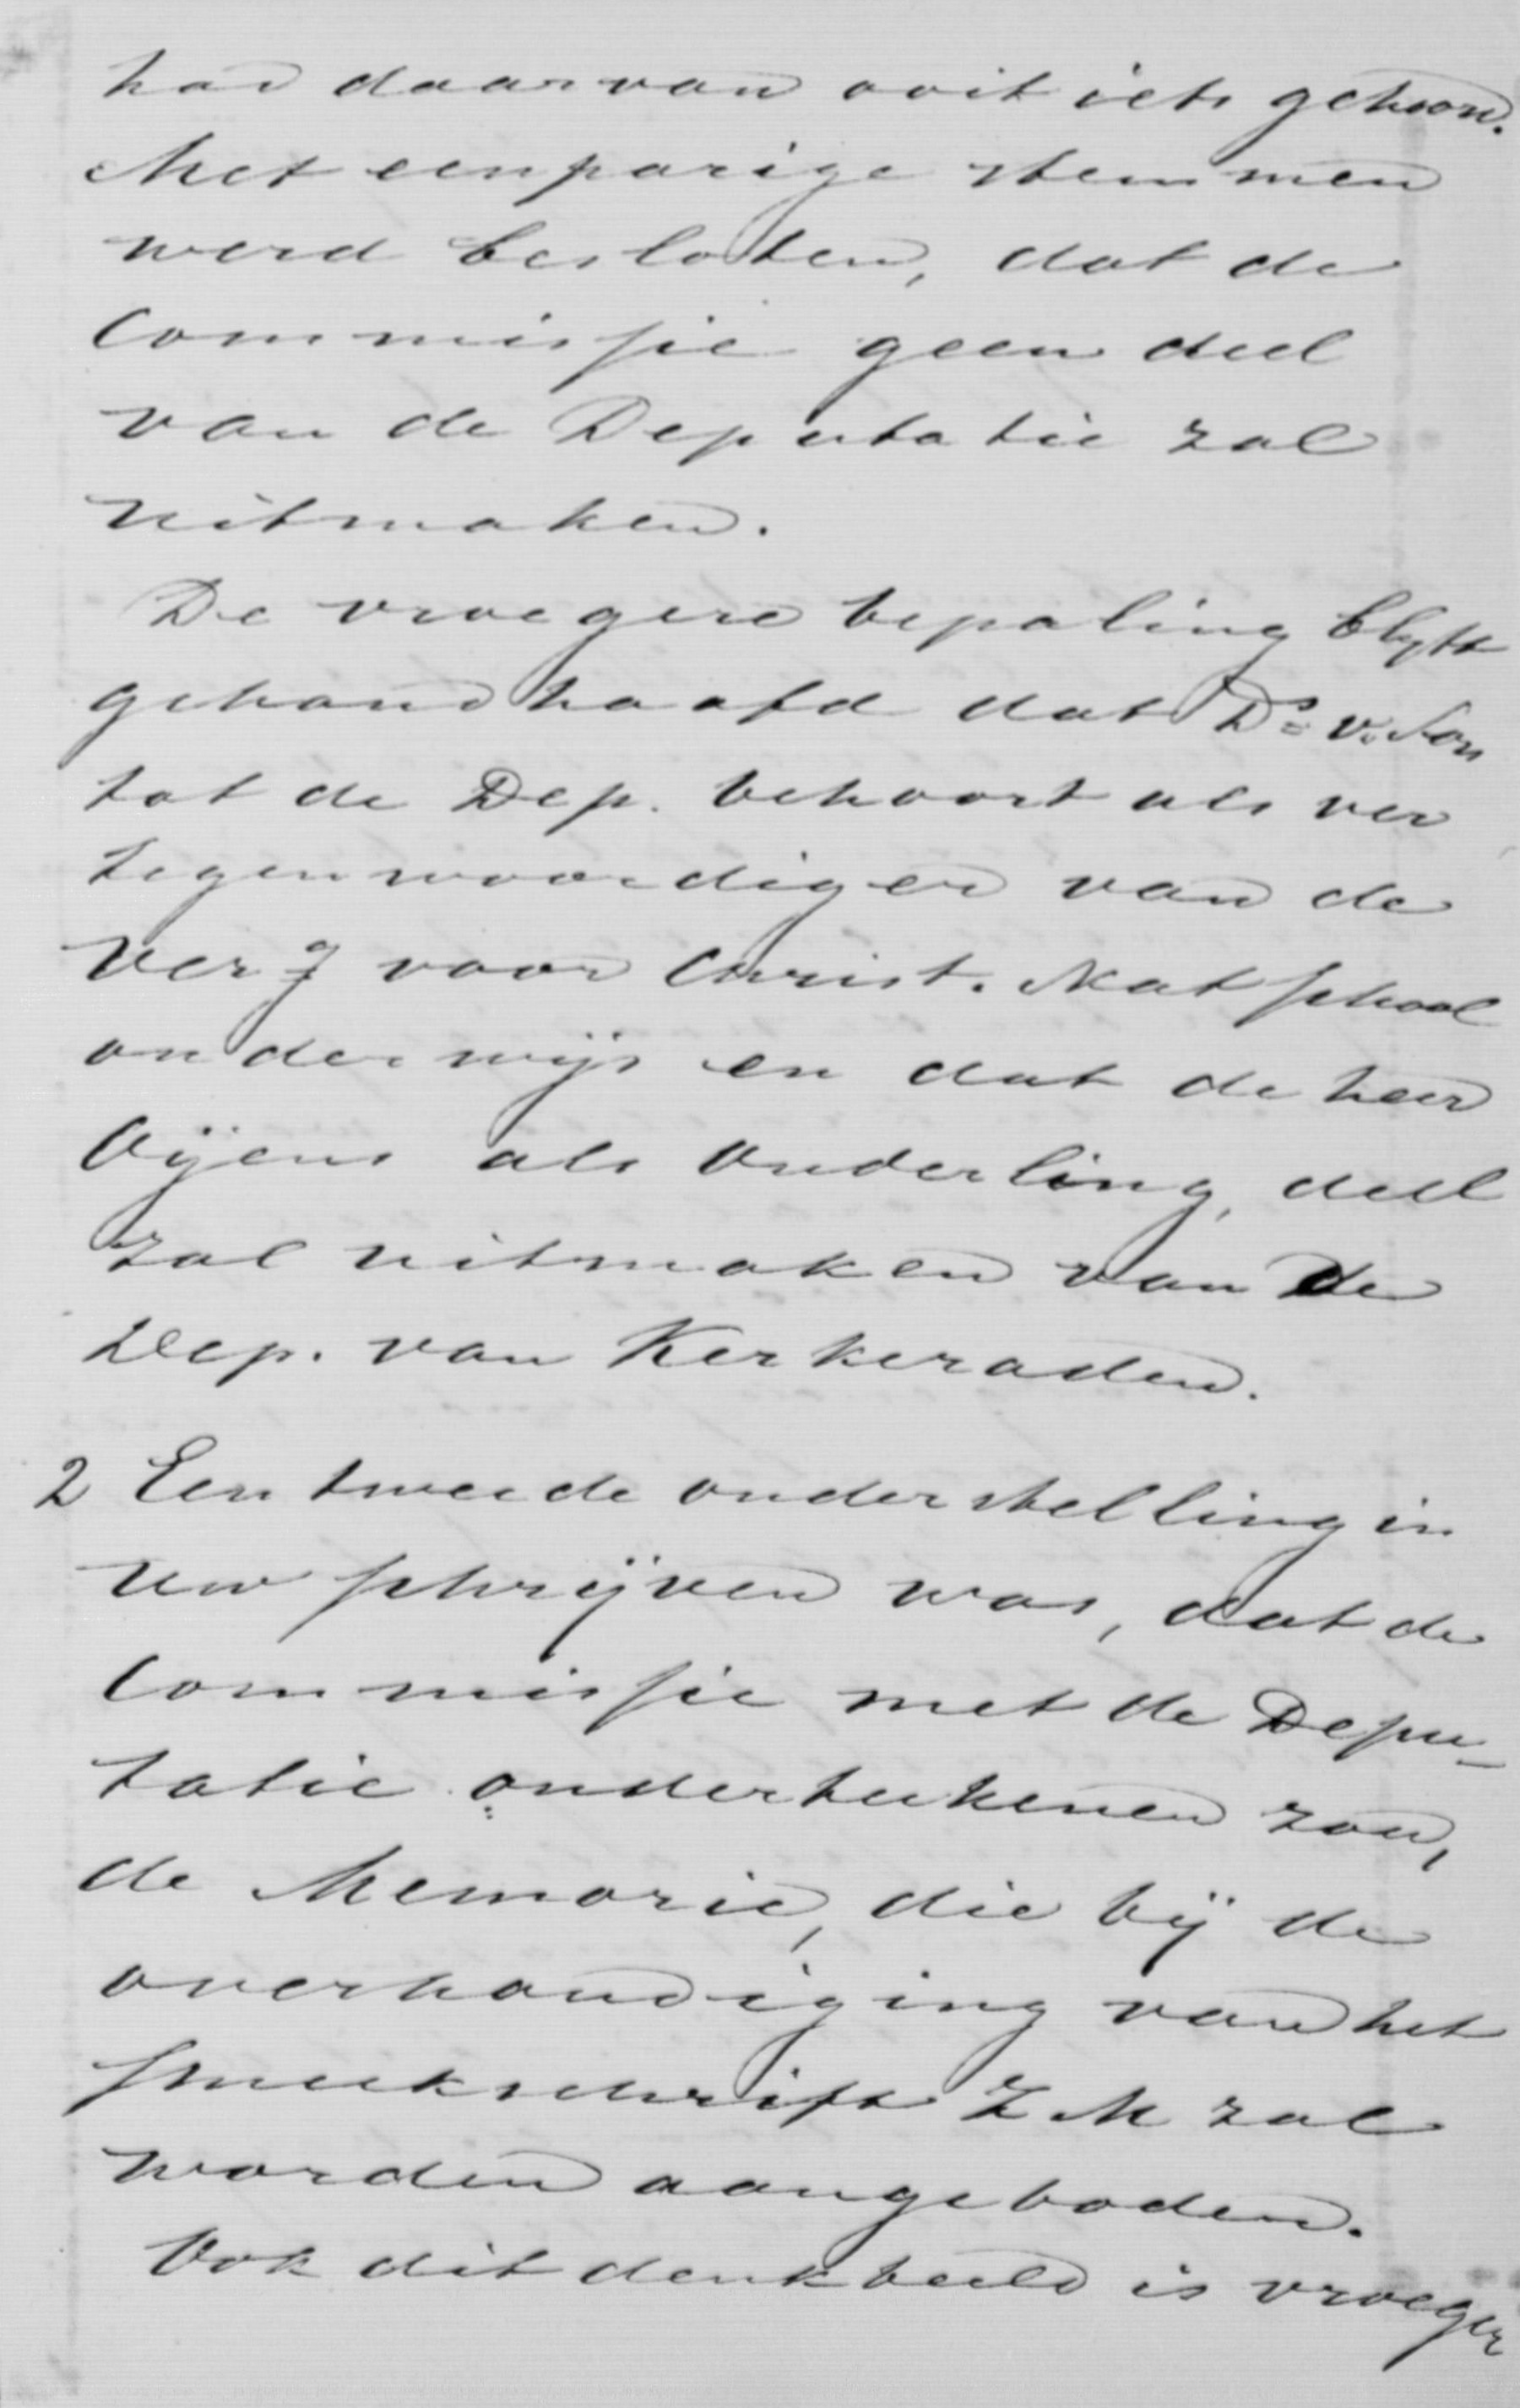 had daarvan ooit iets gehoord.
Met eenparige stemmen
werd besloten, dat de
Commissie geen deel
van de Deputatie zal
uitmaken.
De vroegere bepaling blijft
gehandhaafd dat Ds v. Son
tot de Dep. behoort als ver
tegenwoordiger van de
Verg voor Christ. Nat school
onderwijs en dat de heer
als Ouderling, deel
zal uitmaken van de
Dep. van Kerkeraden.
2 Een tweede onderstelling in
uw schrijven was, dat de
Commissie met de Depu-
tatie onderteekenen zou,
de Memorie, die bij de
overhandiging van het
smeekschrift Z M zal
worden aangeboden.
Ook dit denkbeeld is vroeger